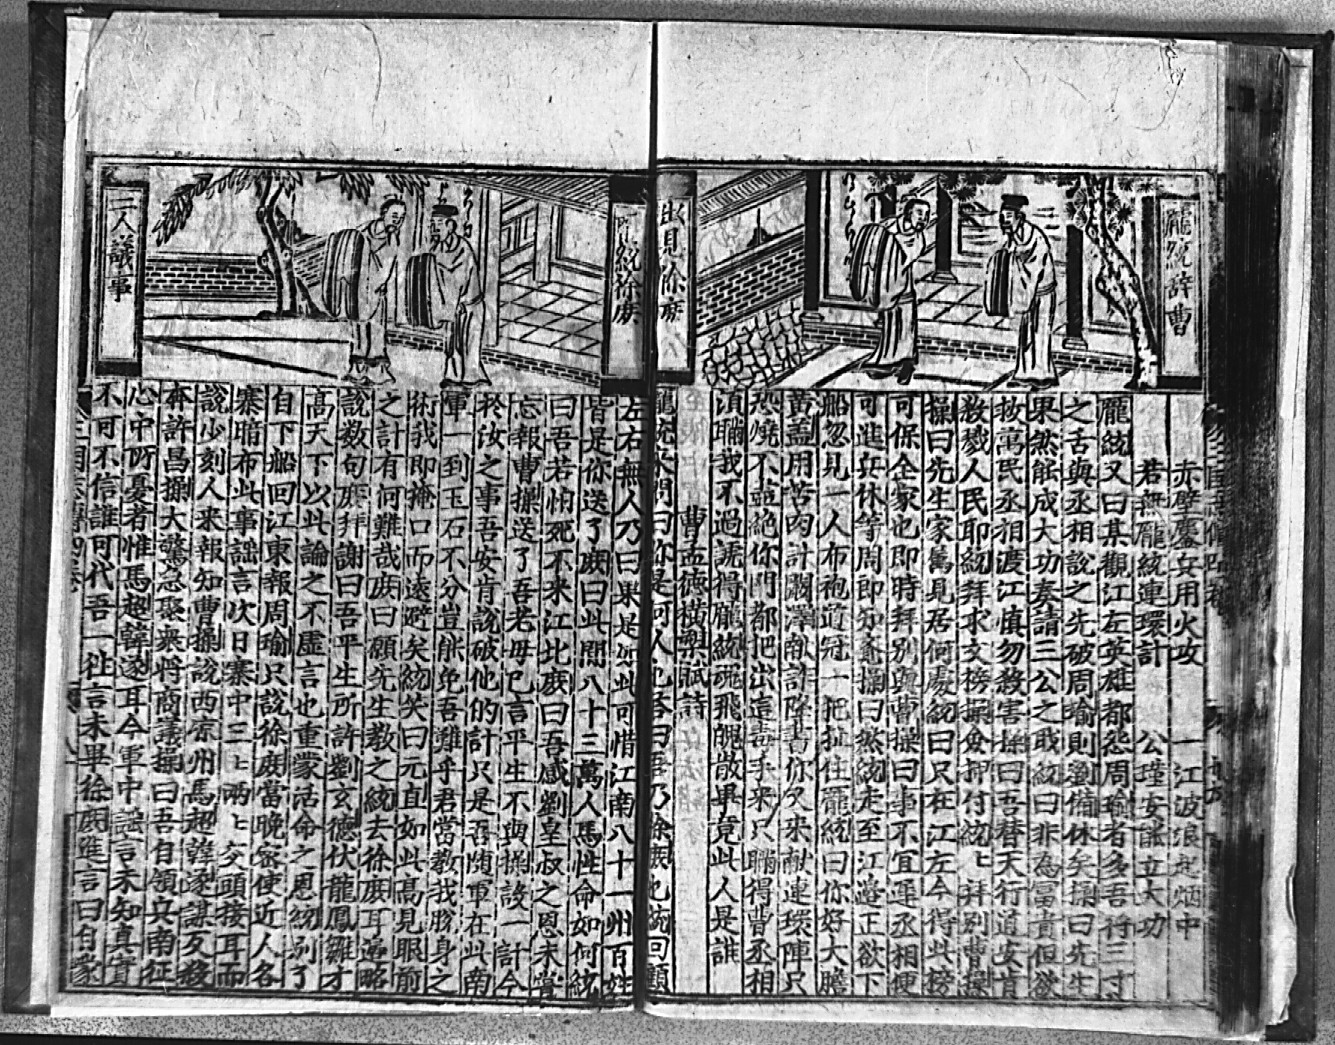 龐統辞曹
出見徐庶
赤壁鏖兵用火攻　一江波浪起烟中
若無龐統連環計　公瑾安能立大功
龐統又曰某觀江左英雄都怨周瑜者多吾将三寸
之舌與丞相說之先破周瑜則劉備休矣操曰先生
果然能成大功奏請三公之职統曰非為富貴但欲
救萬民丞相渡江慎勿殺害操曰吾替天行道安肯
教戮人民耶統拜求文榜操僉押付統〻拜別曹操
操曰先生家舊見居何處統曰只在江左今得此榜
可保全家也即時拜别與曹操曰事不宜遲丞相便
可進兵休等周郎知竟操曰然統走至江邉正欲下
船忽見一人布袍道冠一把扯住龐統曰你好大膽
黃盖用苦肉計闞澤献詐降書你又来献連環陣只
恐燒不盡絶你門都把出這毒手来只瞞得曹丞相
湏瞞我不過諕得龐統魂飛魄散畢竟此人是誰
曹孟德横槊賦詩
龐統來問曰你是何人也答曰吾乃徐庶也統回顧
二人議事
左右無人乃曰果是如此可惜江南八十一州百姓
皆是你送了庶曰此間八十三萬人馬性命如何統
曰吾若怕死不来江北庶曰吾感劉皇叔之恩未嘗
忘報曹操送了吾老母已言平生不與操設一計今
於汝之事吾安肯說破他的計只是吾随軍在此南
軍一到玉石不分豈能免吾難乎君當教我脱身之
術我即掩口而遠避矣統笑曰元直如此高見眼前
之計有何難哉庶曰願先生教之統去徐庶耳邉略
說数句庶拜謝曰吾平生所許劉玄德伏龍鳳雛才
高天下以此論之不虚言也重蒙活命之恩統别了
自下船回江東報周瑜只說徐庶當晚密使近人各
寨暗布此事謡言次日寨中三〻兩〻交頭接耳而
說少刻人来報知曹操說西凉州馬超韓遂謀反殺
奔許昌操大驚急聚衆将商議操曰吾自領兵南征
心中所憂者惟馬超韓遂耳今軍中謡言未知真實
不可不信誰可代吾一徃言未畢徐庶進言曰自蒙